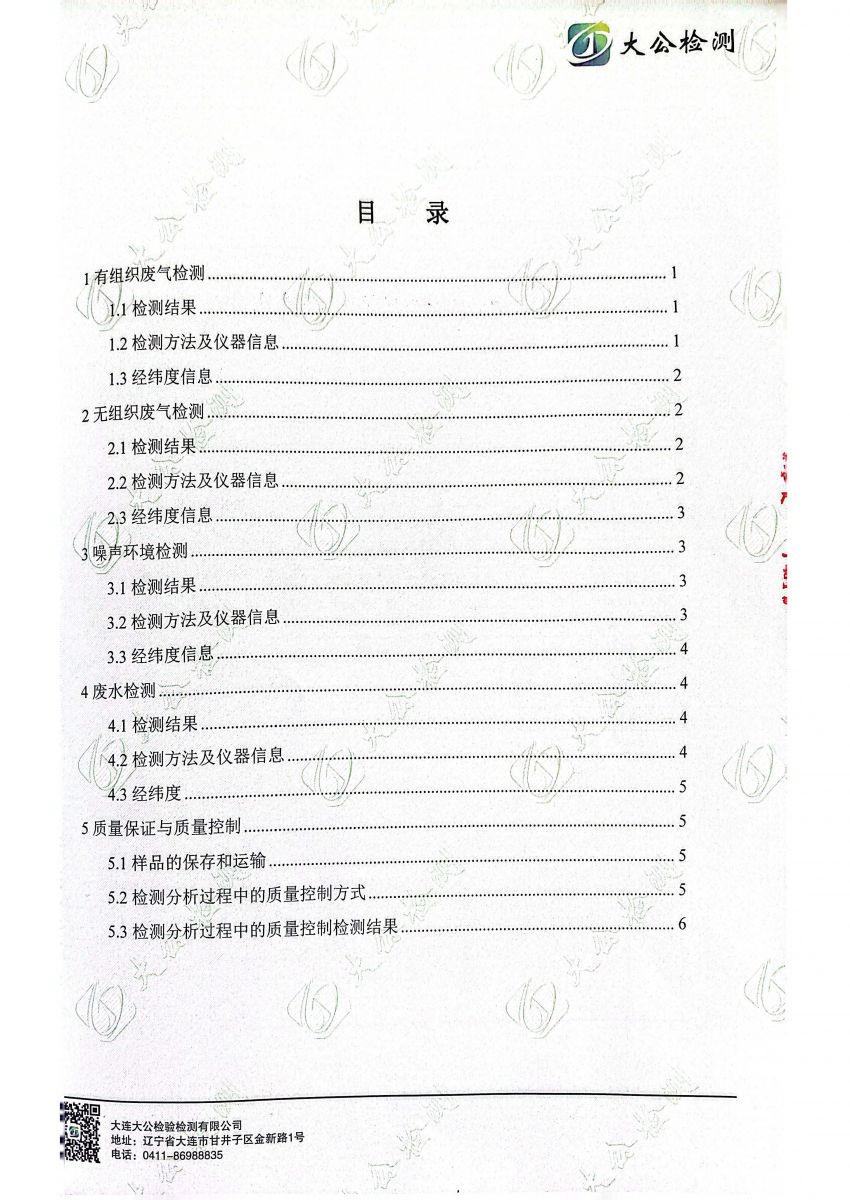 大公检测
目 录
1 有组织废气检测 1
1.1 检测结果 1
1.2 检测方法及仪器信息 1
1.3 经纬度信息 2
2 无组织废气检测 2
2.1 检测结果 2
2.2 检测方法及仪器信息 2
2.3 经纬度信息 3
3 噪声环境检测 3
3.1 检测结果 3
3.2 检测方法及仪器信息 3
3.3 经纬度信息 4
4 废水检测 4
4.1 检测结果 4
4.2 检测方法及仪器信息 4
4.3 经纬度 5
5 质量保证与质量控制 5
5.1 样品的保存和运输 5
5.2 检测分析过程中的质量控制方式 5
5.3 检测分析过程中的质量控制检测结果 6
大连大公检验检测有限公司
地址：辽宁省大连市甘井子区金新路1号
电话：0411-86988835